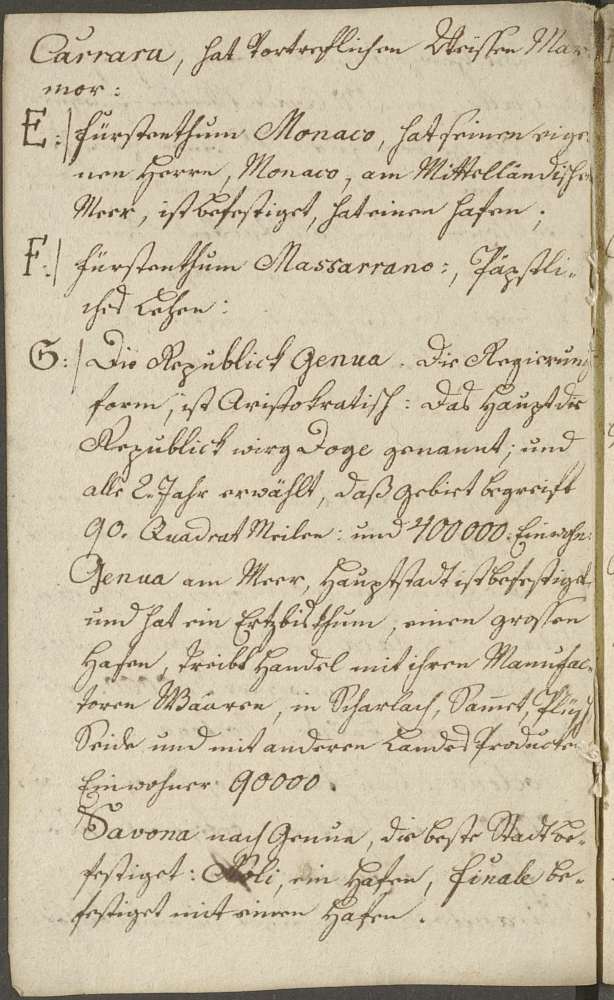 Carrara, hat Vortreflichen Weissen Mar-
mor:
E:/ Fürstenthum Monaco, hat seinen eige-
nen Herrn, Monaco, am Mittelländischen
Meer, ist befestiget, hat einen Hafen;
F:/ Fürstenthum Massarrano:, Päpstli-
ches Lehen:
G:/ Die Republick Genua. Die Regierung
form, ist Aristokratisch: Das Haupt die
Republick wirg Doge genannt; und
alle 2. Jahr erwählt, daß gebiet begreift
90. Quadrat Meilen: und 400000. Einwohn:
Genua am Meer, Hauptstadt ist befestiget
und hat ein Ertzbisthum, einen grossen
Hafen, Treibt Handel mit ihren Manufac-
toren Waaren, in Scharlach, Samet, Plüsch
Seide und mit anderen Landes Producten
Einwohner 90000.
Savona nach Genua, die beste Stadt be-
festiget: Noli, ein Hafen, Finale be-
festiget mit einem Hafen.